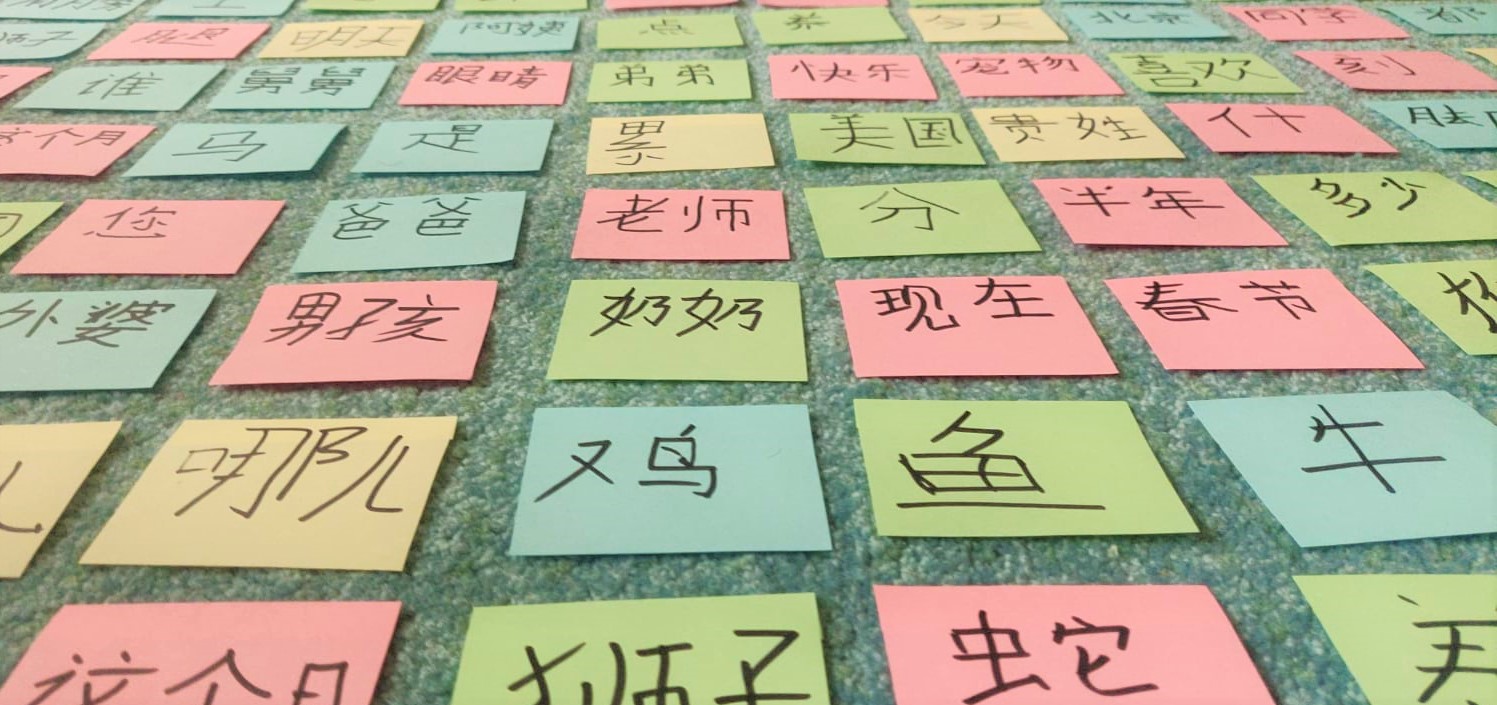 明天 阿姨 点 茶 今天 北京 同学 都
谁 舅舅 眼睛 弟弟 快乐 宠物 喜欢 刻
这个月 马 是 累 美国 贵姓 什
您 爸爸 老师 分 半年 多少
外婆 男孩 奶奶 现在 春节
哪儿 鸡 鱼 牛
这个月 狮子 蛇